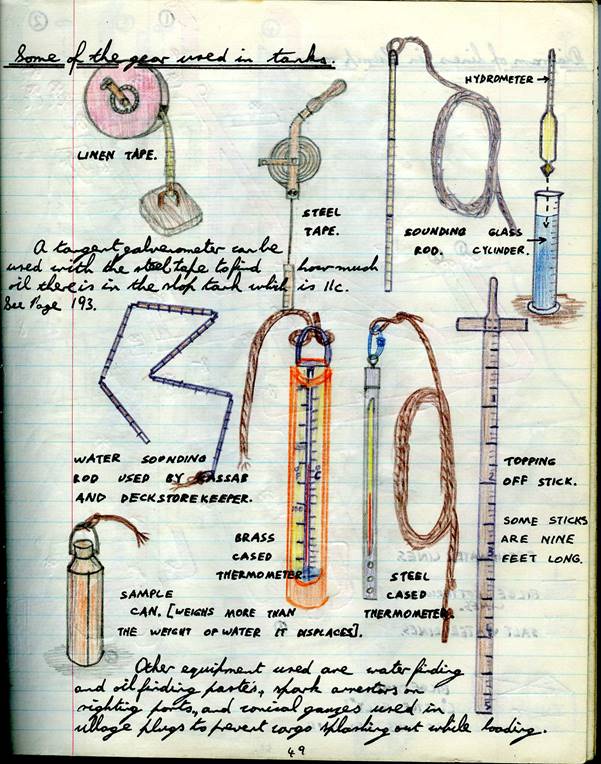 Some of the gear used in tanks.
HYDROMETER
LINEN TAPE.
STEEL
TAPE.
SOUNDING
ROD.
GLASS
CYLINDER.
A tangent galvenometer can be
used with the steel tape to find how much
oil there is in the slop tank which is 11c.
See Page 193.
WATER SOUNDING
ROD USED BY CASSAB
AND DECKSTOREKEEPER.
TOPPING
OFF STICK.
SOME STICKS
ARE NINE
FEET LONG.
BRASS
CASED
THERMOMETER.
STEEL
CASED
THERMOMETER.
SAMPLE
CAN. [WEIGHS MORE THAN
THE WEIGHT OF WATER IT DISPLACES].
Other equipment used are water finding
and oil finding pastes, spark arrestors on
sighting ports, and conical gauzes used in
ullage plugs to prevent cargo splashing out while loading.
49